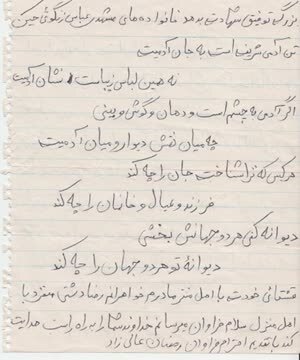 بزرگ توفیق شهادت بدهد خانواده های مشهد عباس زنگوئی حسین
تن آدمی شریف است به جان آدمیت
نه همین لباس زیباست نشان آدمیت
اگر آدمی به چشم است و دهان و گوش و بینی
چه میان نقش دیوار و میان آدمیت
هر کس که ترا شناخت جان را چه کند
فرزند و عیال و خانمان را چه کند
دیوانه کنی هر دو جهانش بخشی
دیوانه تو هر دو جهان را چه کند
خدمت با اهل منزل مادرم خواهرانم رضا دشتی منفرد با
اهل منزل سلام فراوان میرسانم خداوند شما را به راه راست هدایت
کند با تقدیم احترام فراوان رمضان عالی زاد